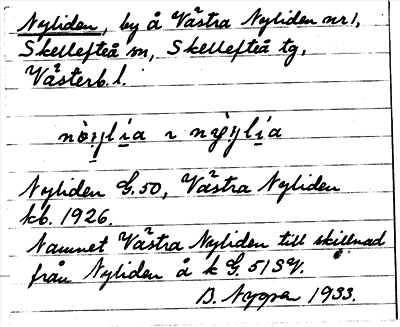 Nyliden, by å Västra Nyliden nr 1,
Skellefteå sn, Skellefteå tg,
Västerb. l.
nò̤ylía ~ nỳylía
Nyliden G. 50, Västra Nyliden
kb. 1926.
Namnet Västra Nyliden till skillnad
från Nyliden å k G. 51 SV.
B. 1933.